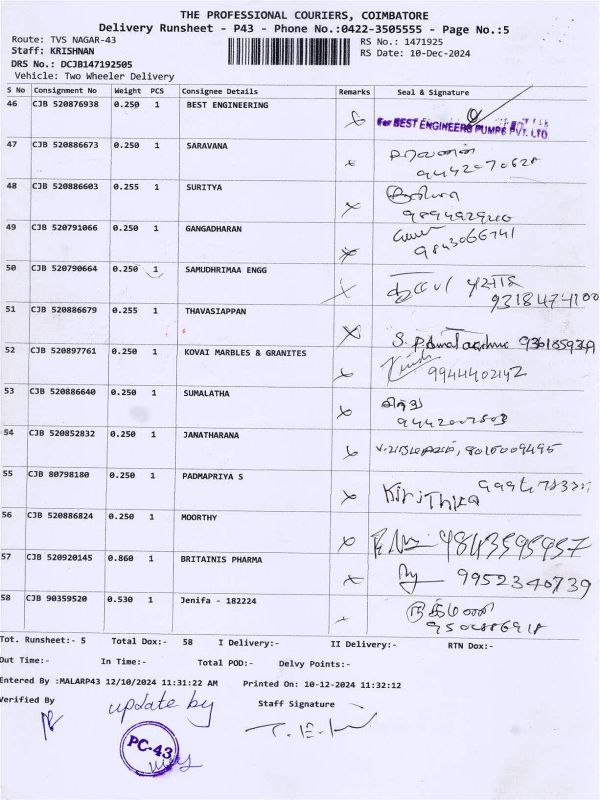 THE PROFESSIONAL COURIERS, COIMBATORE
Delivery Runsheet - P43 - Phone No.:0422-3505555 - Page No.:5
Route: TVS NAGAR-43
RS No.: 1471925
Staff: KRISHNAN
RS Date: 10-Dec-2024
DRS No.: DCJB147192505
Vehicle: Two Wheeler Delivery
S No Consignment No Weight PCS Consignee Details Remarks Seal & Signature
46 CJB 520876938 0.250 1 BEST ENGINEERING
For BEST ENGINEERS PUMPS PVT. LTD
47 CJB 520886673 0.250 1 SARAVANA
சரவணன்
9442070628
48 CJB 520886603 0.255 1 SURITYA
49 CJB 520791066 0.250 1 GANGADHARAN
9843066741
50 CJB 520790664 0.250 1 SAMUDHRIMAA ENGG
9318474100
51 CJB 520886679 0.255 1 THAVASIAPPAN
52 CJB 520897761 0.250 1 KOVAI MARBLES & GRANITES
9944402142
53 CJB 520886640 0.250 1 SUMALATHA
54 CJB 520852832 0.250 1 JANATHARANA
55 CJB 80798180 0.250 1 PADMAPRIYA S
KiriThika
56 CJB 520886824 0.250 1 MOORTHY
9843595957
57 CJB 520920145 0.860 1 BRITAINIS PHARMA
9952340739
58 CJB 90359520 0.530 1 Jenifa - 182224
Tot. Runsheet:- 5 Total Dox:- 58 I Delivery:- II Delivery:- RTN Dox:-
Out Time:- In Time:- Total POD:- Delvy Points:-
Entered By :MALARP43 12/10/2024 11:31:22 AM Printed On: 10-12-2024 11:32:12
Verified By update by Staff Signature
PC-43